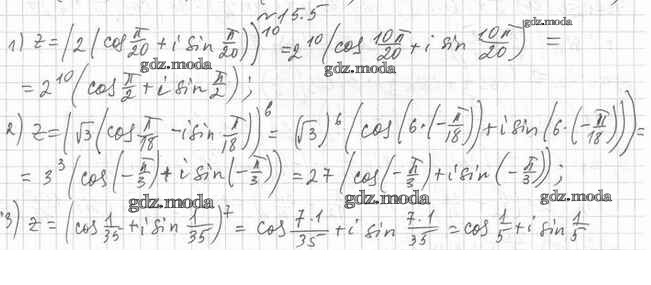 №15.5
1) z = (2(cos π/20 + i sin π/20))^10 = 2^10 (cos 10π/20 + i sin 10π/20) =
= 2^10 (cos π/2 + i sin π/2);
2) z = (√3 (cos π/18 - i sin π/18))^6 = (√3)^6 (cos(6·(-π/18)) + i sin(6·(-π/18))) =
= 3^3 (cos(-π/3) + i sin(-π/3)) = 27 (cos(-π/3) + i sin(-π/3));
3) z = (cos 1/35 + i sin 1/35)^7 = cos 7·1/35 + i sin 7·1/35 = cos 1/5 + i sin 1/5
gdz.moda
gdz.moda
gdz.moda
gdz.moda
gdz.moda
gdz.moda